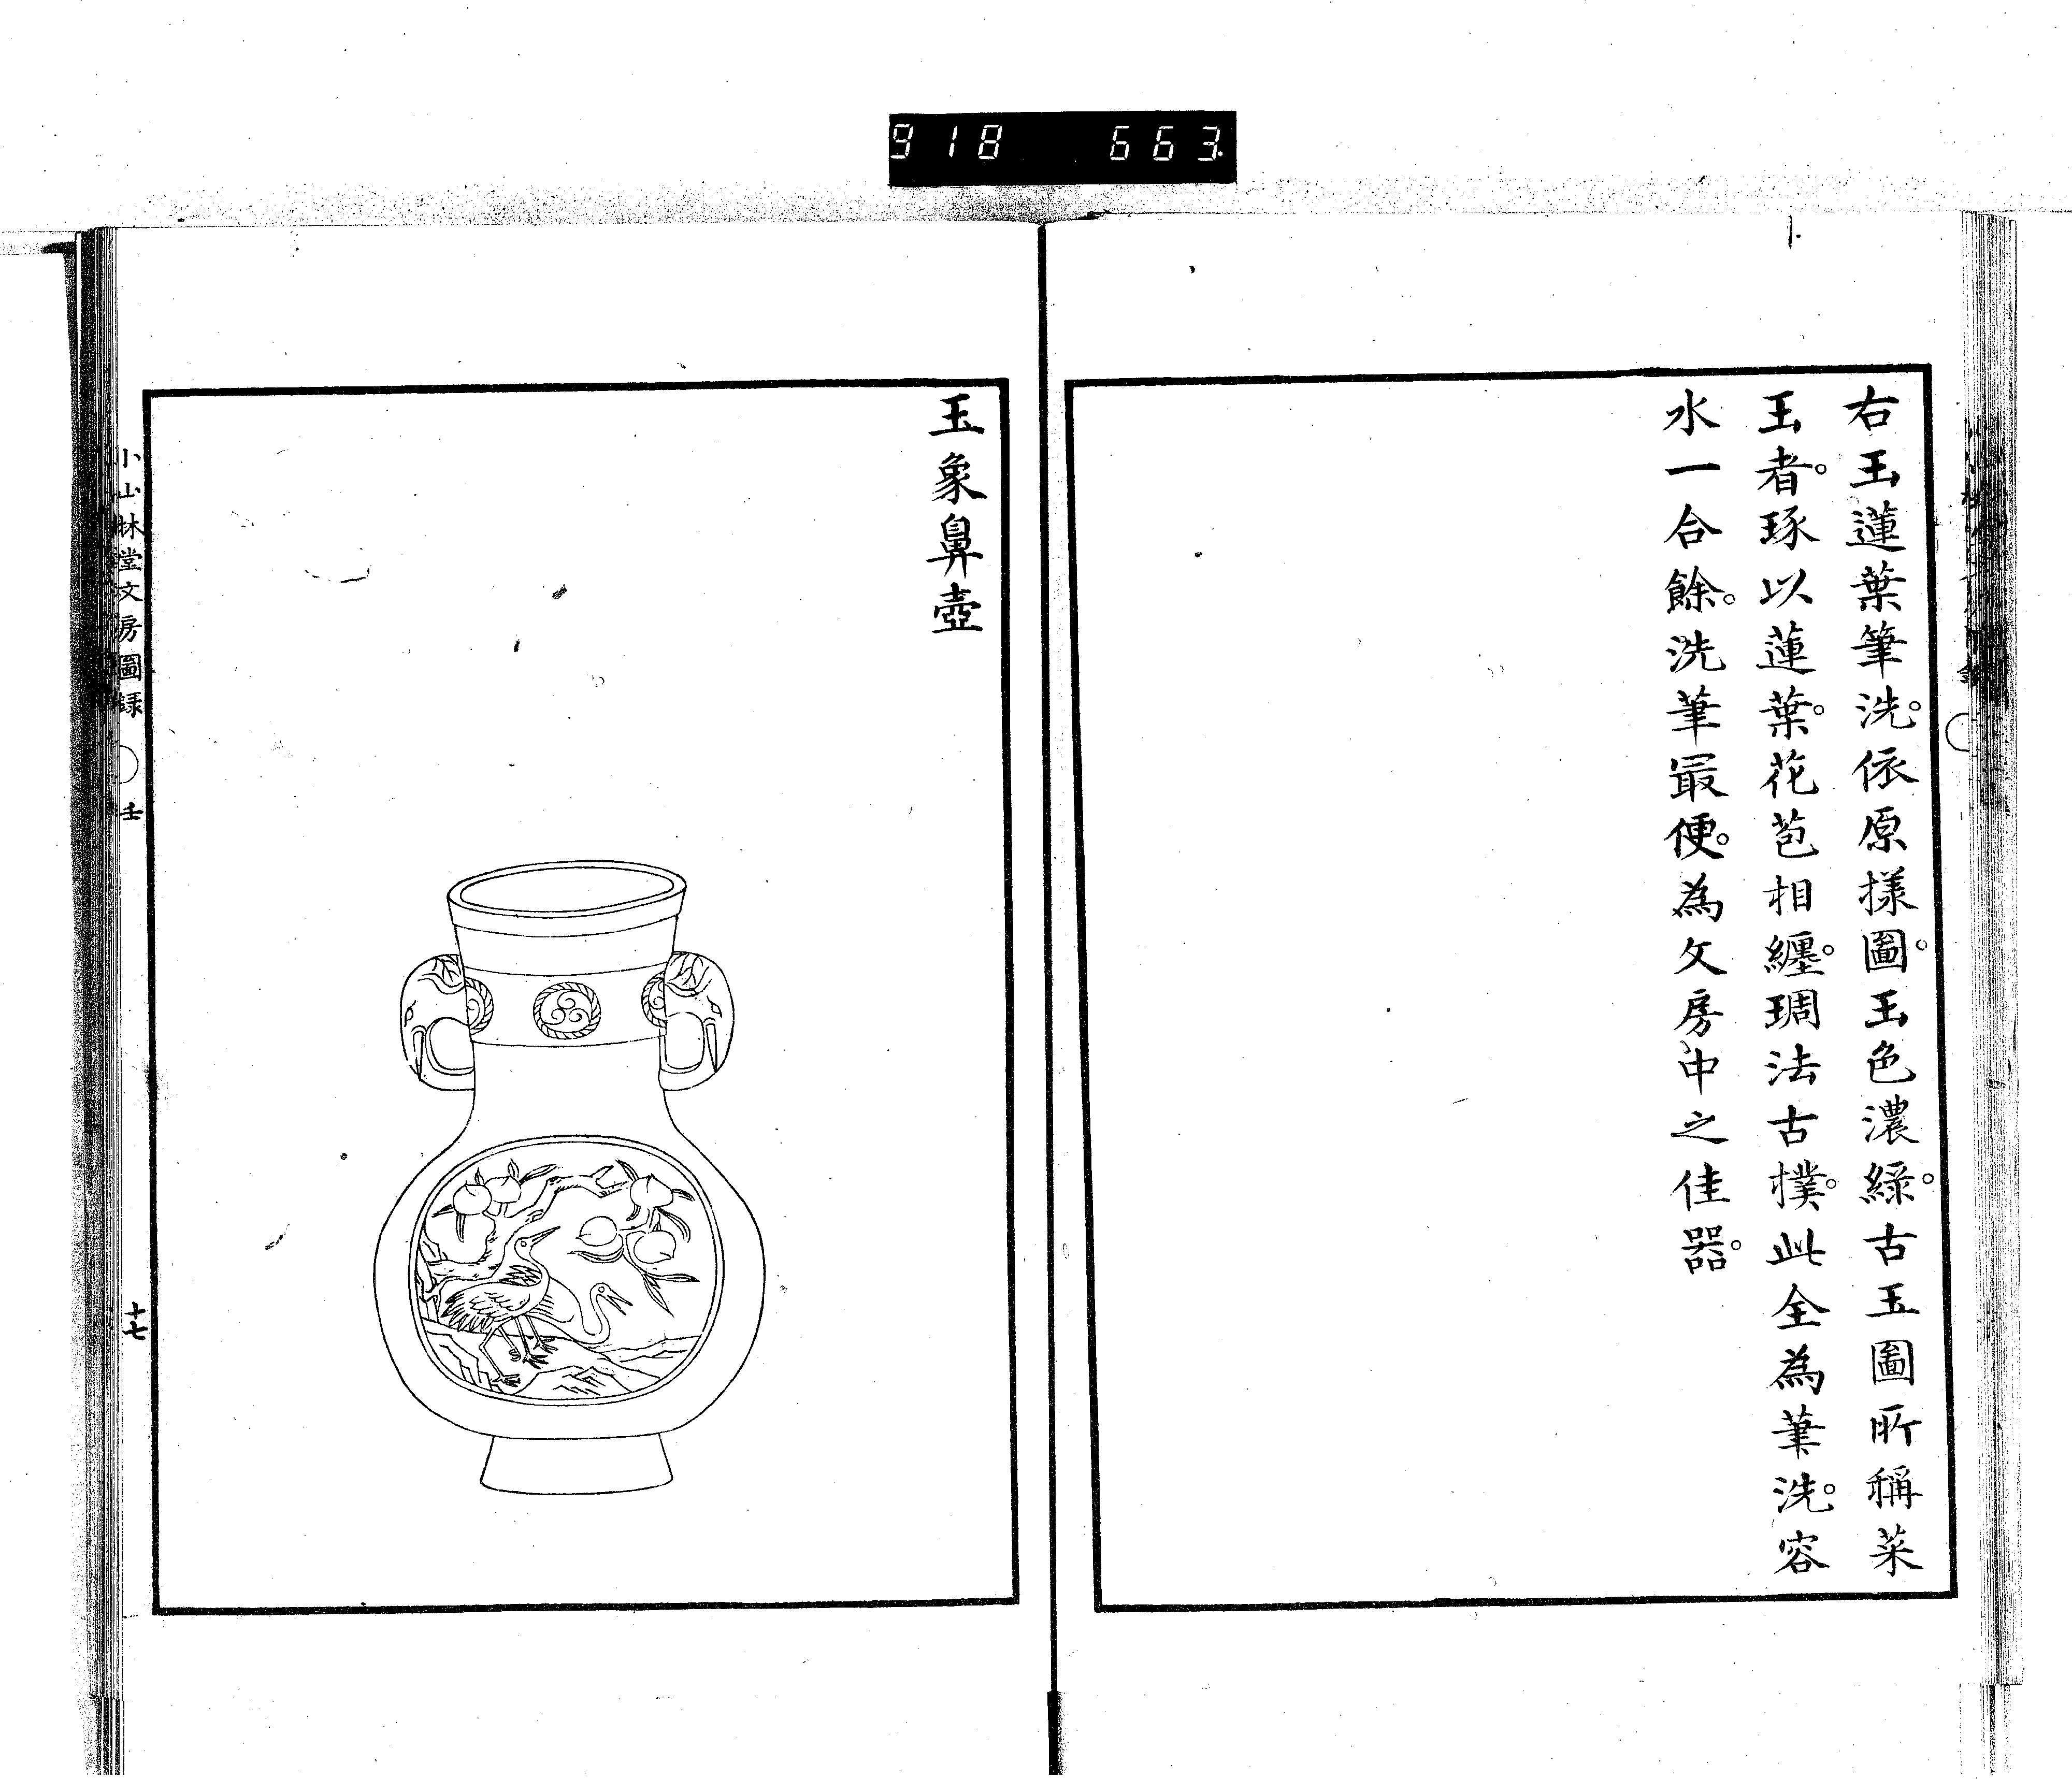 918 663
右玉蓮葉筆洗。依原様圖。玉色濃綠。古玉圖所稱菜
玉者。琢以蓮葉。花苞相纏。琱法古撲。此全為筆洗。容
水一合餘。洗筆最便。為文房中之佳器。
玉象鼻壺
小山林堂文房圖錄
壬
十七